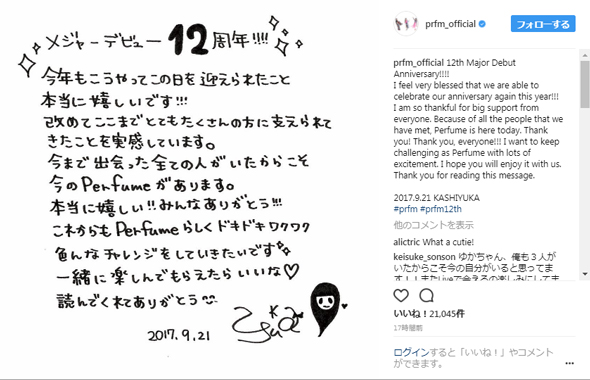 メジャーデビュー12周年!!!!
今年もこうやってこの日を迎えられたこと
本当に嬉しいです!!!
改めてここまでとてもたくさんの方に支えられて
きたことを実感しています。
今まで出会った全ての人がいたからこそ
今のPerfumeがあります。
本当に嬉しい!!みんなありがとう!!!
これからもPerfumeらしくドキドキワクワク
色んなチャレンジをしていきたいです
一緒に楽しんでもらえたらいいな♡
読んでくれてありがとう
2017.9.21
prfm_official
フォローする
prfm_official 12th Major Debut
Anniversary!!!!
I feel very blessed that we are able to
celebrate our anniversary again this year!!!
I am so thankful for big support from
everyone. Because of all the people that we
have met, Perfume is here today. Thank
you! Thank you, everyone!!! I want to keep
challenging as Perfume with lots of
excitement. I hope you will enjoy it with us.
Thank you for reading this message.
2017.9.21 KASHIYUKA
#prfm #prfm12th
他のコメントを表示
alictric What a cutie!
keisuke_sonson ゆかちゃん、俺も3人が
いたからこそ今の自分がいると思ってま
す!!またliveで会えるの楽しみにしてま
いいね!21,045件
17時間前
ログインすると「いいね!」やコメント
ができます。